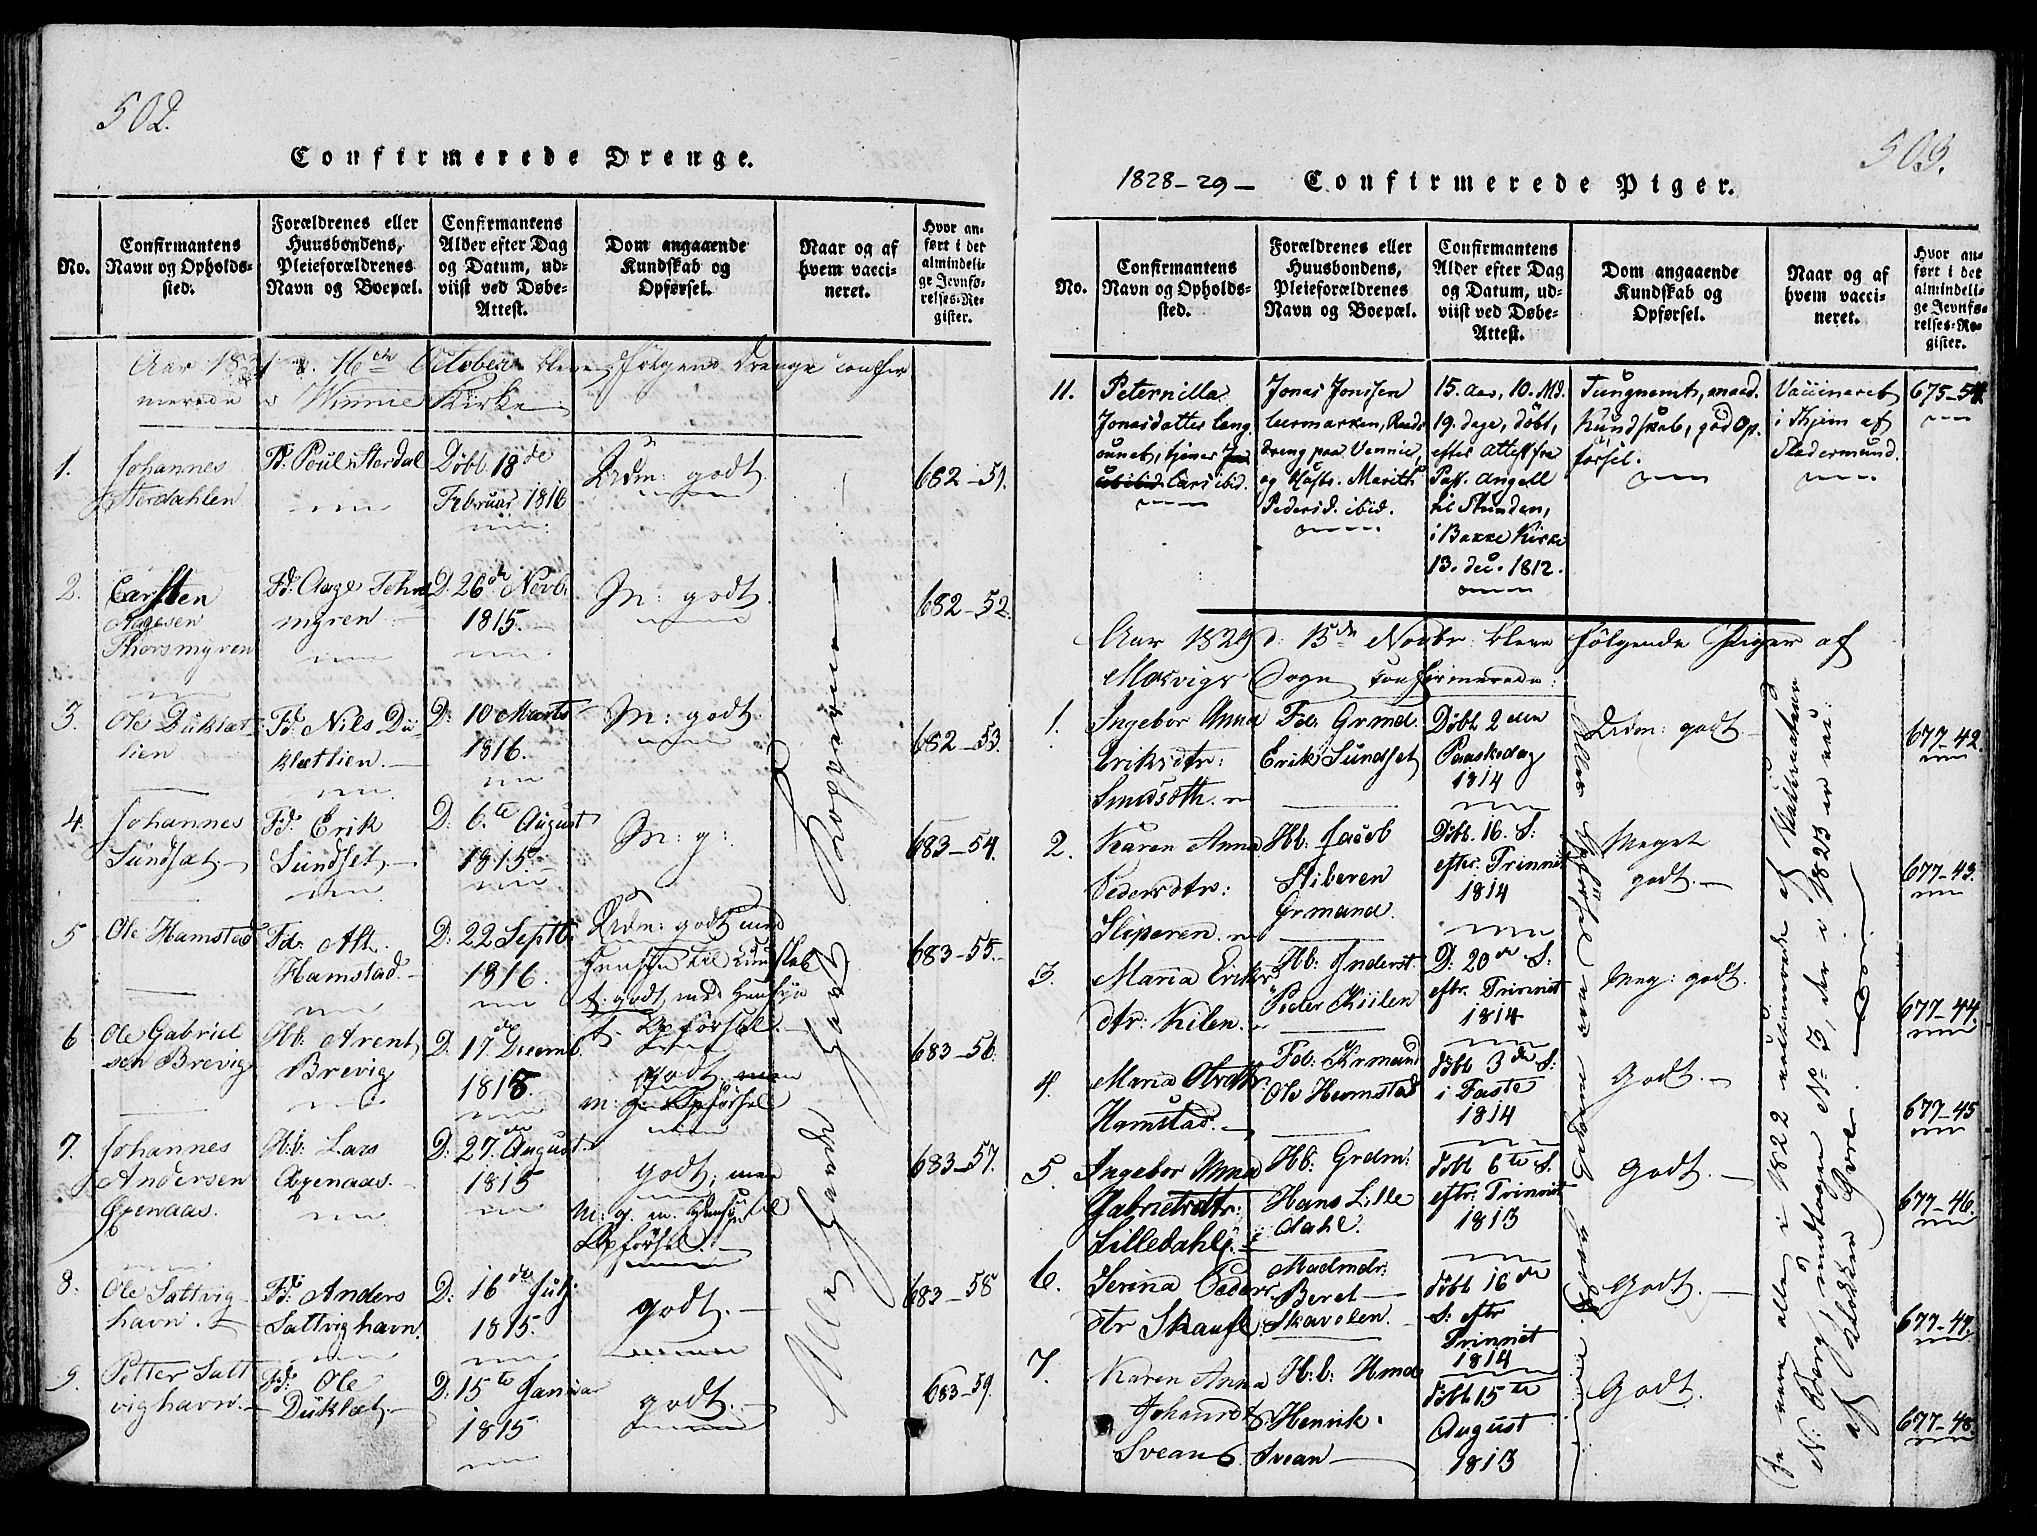 502.
Confirmerede Drenge.
No.
Confirmantens
Navn og Opholds-
sted.
Forældrenes eller
Huusbondens,
Pleieforældrenes
Navn og Boepæl.
Confirmantens
Alder efter Dag
og Datum, ud-
viist ved Døbe-
Attest.
Dom angaaende
Kundskab og
Opførsel.
Naar og af
hvem vacci-
neret.
Hvor an-
ført i det
almindeli-
ge Jevnfø-
relses-Re-
gister.
Aar 1831 d. 16de October bleve følgende Drenge confir
merede i Winnie Kirke
1.
Johannes
Størdahlen
Fd: Poul Størdal
Døbt 18de
Februar 1816
Udm: godt
682-51.
2.
Carsten
Aagesen
Thorsmyren
Fd: Aage
myren
D. 26de Novb.
1815.
M: godt.
682-52.
3.
Ole Duklæt
lien
Fd: Nils Du
klætlien.
D: 10 Marts
1816.
M: godt.
682-53.
4.
Johannes
Sundsæt.
Fd: Erik
Sundset.
D: 6te August
1815.
M: g:
683-54.
5
Ole Hamstad
Fd: Alt.
Hamstad.
D: 22 Septb.
1816.
Udm: godt med
Hensyn til Kundskab
t. godt med Hensyn
t. Opførsel.
683-55.
6
Ole Gabriel
sen Brevig
Hb: Arent
Brevig
D: 17de Decemb.
1815.
godt, men
m: g: Opførsel
683-56.
7.
Johannes
Andersen
Agenaas.
Hb: Lars
Agenaas.
D: 27de August
1815
godt, men
m: g. m. Hensyn til
Opførsel.
683-57.
8.
Ole Saltvig
havn.
Fd: Anders
Saltvighavn.
D: 16de July
1815.
godt.
683-58
9.
Petter Salt
vighavn.
Fd: Ole
Duklæt.
D: 15te Januar
1815
godt.
683-59.
503.
1828-29-
Confirmerede Piger.
No.
Confirmantens
Navn og Opholds-
sted.
Forældrenes eller
Huusbondens,
Pleieforældrenes
Navn og Boepæl.
Confirmantens
Alder efter Dag
og Datum, ud-
viist ved Døbe-
Attest.
Dom angaaende
Kundskab og
Opførsel.
Naar og af
hvem vacci-
neret.
Hvor an-
ført i det
almindeli-
ge Jevnfø-
relses-Re-
gister.
11.
Peternilla
Jonasdatter
tjener
Lars ibid.
Jonas Jonssen
dreng paa Vennie,
og Kusts. Marith
Pedersd. ibid.
15. Aar, 10. Md.
19. dage, døbt,
efter Attest fra
Past. Angell
til Strinden,
i Bakke Kirke
13. dec. 1812.
Tungnemt, maad.
Kundskab, god Op.
førsel.
Vaccineret
i Thjem af
Fledermund.
675-54.
Aar 1829 d: 15de Novbr: bleve følgende Piger af
Mosvigs Sogn confirmerede:
1.
Ingebor Anna
Eriksdtr:
Sundsæth.
Fd: Grmd.
Erik Sundset
Døbt 2den
Paaskedag
1814
Udm: godt.
677-42.
2.
Karen Anna
Pedersdtr:
Sliperen.
Hb: Jacob
Sliberen
Grmand.
Døbt. 16. S:
efter Trinnit
1814
Meget
godt.
677-43.
3.
Maria Eriks
dtr: Kilen.
Hb: Inderst
Peder Kiilen
D: 20de S:
eftr. Trinnit
1814
Meg: godt.
677-44.
4.
Maria Olsdtr:
Hamstad.
Fd: Grmand
Ole Hamstad
døbt 3de S:
i Faste
1814
Godt.
677-45
5.
Ingebor Anna
Gabrielsdtr:
Lilledahl
Hb: Grdm:
Hans Lille
dahl.
døbt 6te S.
eftr: Trinnit
1813
Godt.
677-46.
6.
Serina Peders
dtr Skaufl:
Madmdr:
Beret
Skavolen.
døbt 16de
S: eftr
Trinnit
1814
Godt.
677-47.
7.
Karen Anna
Johansdtr
Svean
H:b: Hmd
Henrik
Svean
døbt 15te
August
1813
Godt.
677-48.